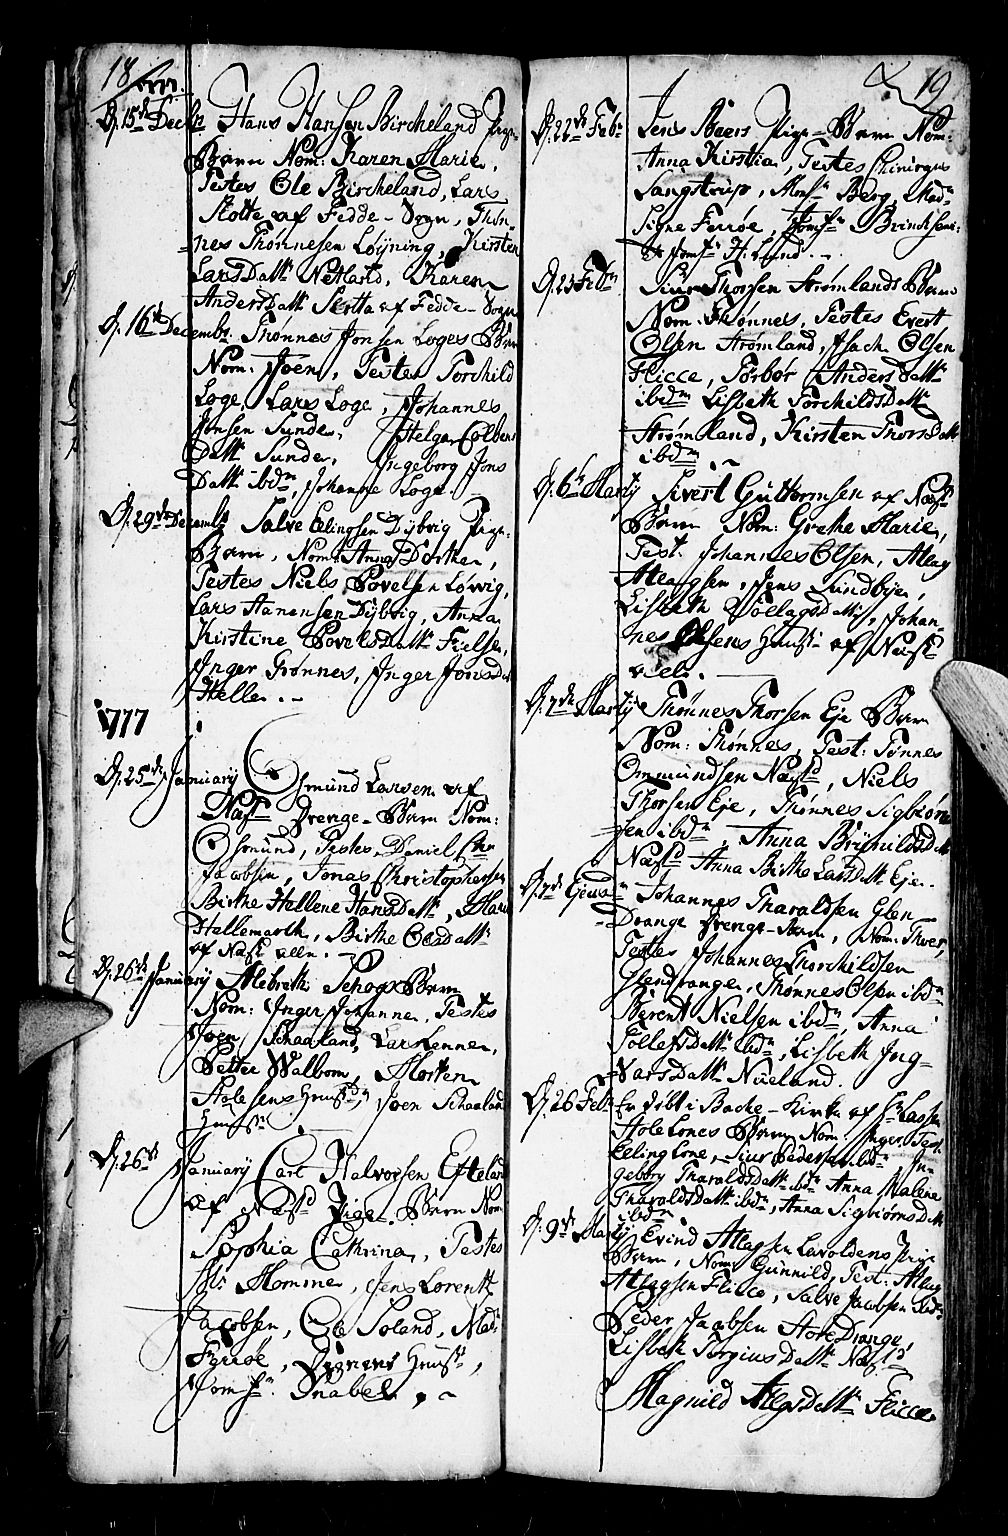 18
D. 15de Decbr Hans Hansen Bircheland Pige-
Barn Nom: Karen Marie,
Testes Ole Bircheland, Lars
Stotte af Fedde-Sogn, Thøn-
nes Thønnesen Løyning, Kirsten
LarsDattr Netland, Karen
AndersDattr af Fedde-Sogn
D. 16de Decembr. Thønnes Jonsen Loges Barn
Nom: Joen, Testes Torchild
Loge, Lars Loge, Johannes
Jonsen Sunde, Helga
Dattr Sunde, Ingeborg Jons
Dattr ibdm, Johanne Loge.
D. 29de Decembr Salve Elingsen Dybvig Pige-
Barn, Nom: Anna Dorthe,
Testes Niels Povelsen Løvvig,
Lars Aanensen Dybvig, Anna
Kirstine PovelsDattr Fielse,
Inger Grønnes, Inger JonsDr
Helle.
1777
D. 25de January Osmund Larsen af
Næss Drenge-Barn Nom:
Osmund, Testes Daniel
Jacobsen, Jonas Christophersen
Birthe Hellene HansDattr, Marie
Hallemoth, Birthe OlesDattr
af Næss
D. 26de January Albreth Barn
Nom: Inger Johanne, Testes
Joen Schaaland, Lars Lenne,
Petter Walbom, Morten
Holesens Hustr, Joen Schaaland
Hustr.
D. 26de January Carl Halvorsen Eftelan
af Næss Pige-Barn Nom
Sophia Cathrina, Testes
Mr Homme, Jens Lorentz
Jacobsen, Ole Soland, Mad:
Ferroe, Hustr,
Jomfr. Snabel.
19
D. 22de Febr Jens Beers Pige-Barn Nom:
Anna Kirstia, Testes Chirurgus
Sangstrup, Monsr Berg, Madm
Signe Ferroe, Jomfr
Jomfr H. Lund.
D. 23 Febr Siur Thorsen Strømlands Barn
Nom: Thønnes, Testes Evert
Olsen Strømland, Isach Olsen
Flicce, Torbor AndersDattr
ibdm Lisbeth TorchildsDattr
Strømland, Kirsten ThorsDattr
ibdm
D. 6te Marty Sivert Guttormsen af Næss
Barn Nom: Grethe Marie,
Test: Johannes Olsen, Atlag
Atlagsen, Jens Lindbye,
Lisbeth Dattr, Johan-
nes Olsens Hustr af Næss
D. 7de Marty Thønnes Thorsen Eje Barn
Nom: Thønnes, Test: Tønnes
Ommundsen Næss, Niels
Thorsen Eje, Thønnes Sigbiørn
sen ibdm, Anna BrynildsDattr
Næss Anna Birthe LarsDattr Eje.
D. 7de Ejusdm Johannes Tharaldsen Glen-
Drange Drenge-Barn, Nom: Thver,
Testes Johannes Thorchildsen
Glendrange, Thønnes Olsen ibdm
Berent Nielsen ibdm, Anna
TollefsDattr ibdm, Lisbeth Ing-
VarsDattr Nueland.
D. 26 Febr Er døbt i Bache-Kirke af Hr Lassen
Hole Lones Barn Nom: Inger, Test:
Eling Lone, Siur Pedersen ibdm In-
geborg TharaldsDattr ibdm Anna Malena
TharaldsDattr ibdm, Anna SigbiørnsDattr
ibdm
D. 9de Marty Evind Atlagsen Lavoldens Pige
Barn, Nom: Gunnild, Test: Atlag
Atlagsen Flicce, Salve Jacobsen
Peder Jacobsen HoleDrange,
Lisbeth TorgiusDattr Næss
Magnild AtlagsDattr Flicce.